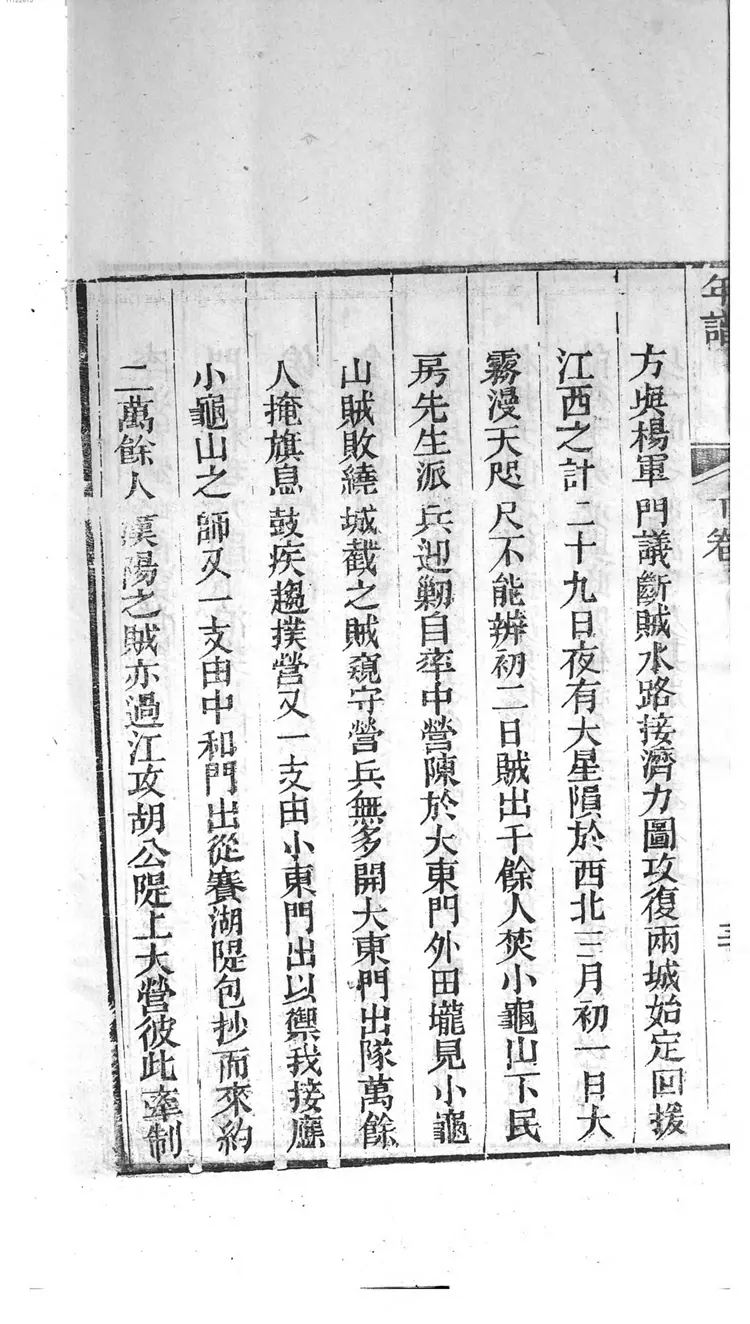 年譜
下卷
方與楊軍門議斷賊水路接濟力圖攻復兩城始定回援
江西之計二十九日夜有大星隕於西北三月初一日大
霧漫天咫尺不能辨初二日賊出千餘人焚小龜山下民
房先生派兵迎勦自率中營陳於大東門外田壠見小龜
山賊敗繞城截之賊窺守營兵無多開大東門出隊萬餘
人掩旗息鼓疾趨撲營又一支由小東門出以禦我接應
小龜山之師又一支由中和門出從賽湖隄包抄而來約
二萬餘人漢陽之賊亦過江攻胡公隄上大營彼此牽制